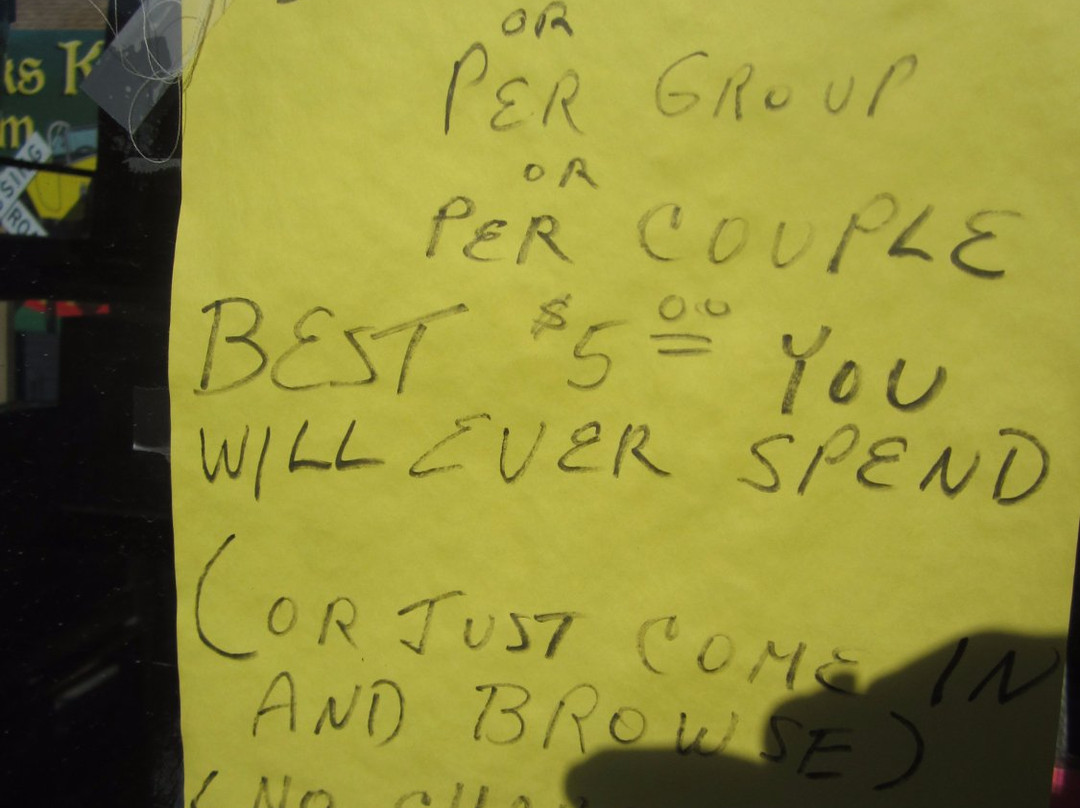 OR
PER GROUP
OR
PER COUPLE
BEST $5.00 YOU
WILL EVER SPEND
(OR JUST COME IN
AND BROWSE)
(NO